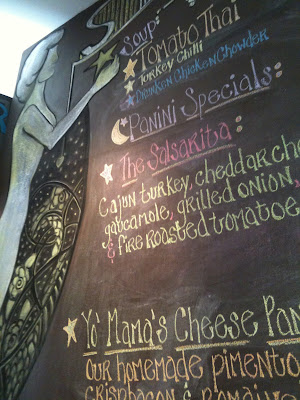 Soup:
Tomato Thai
Turkey Chili
Drunken Chicken Chowder
Panini Specials:
The Salsarita:
Cajun turkey, cheddar che
guacamole, grilled onion,
& fire roasted tomatoe
Yo Mama's Cheese Pan
our homemade pimento
crisp bacon & romaine